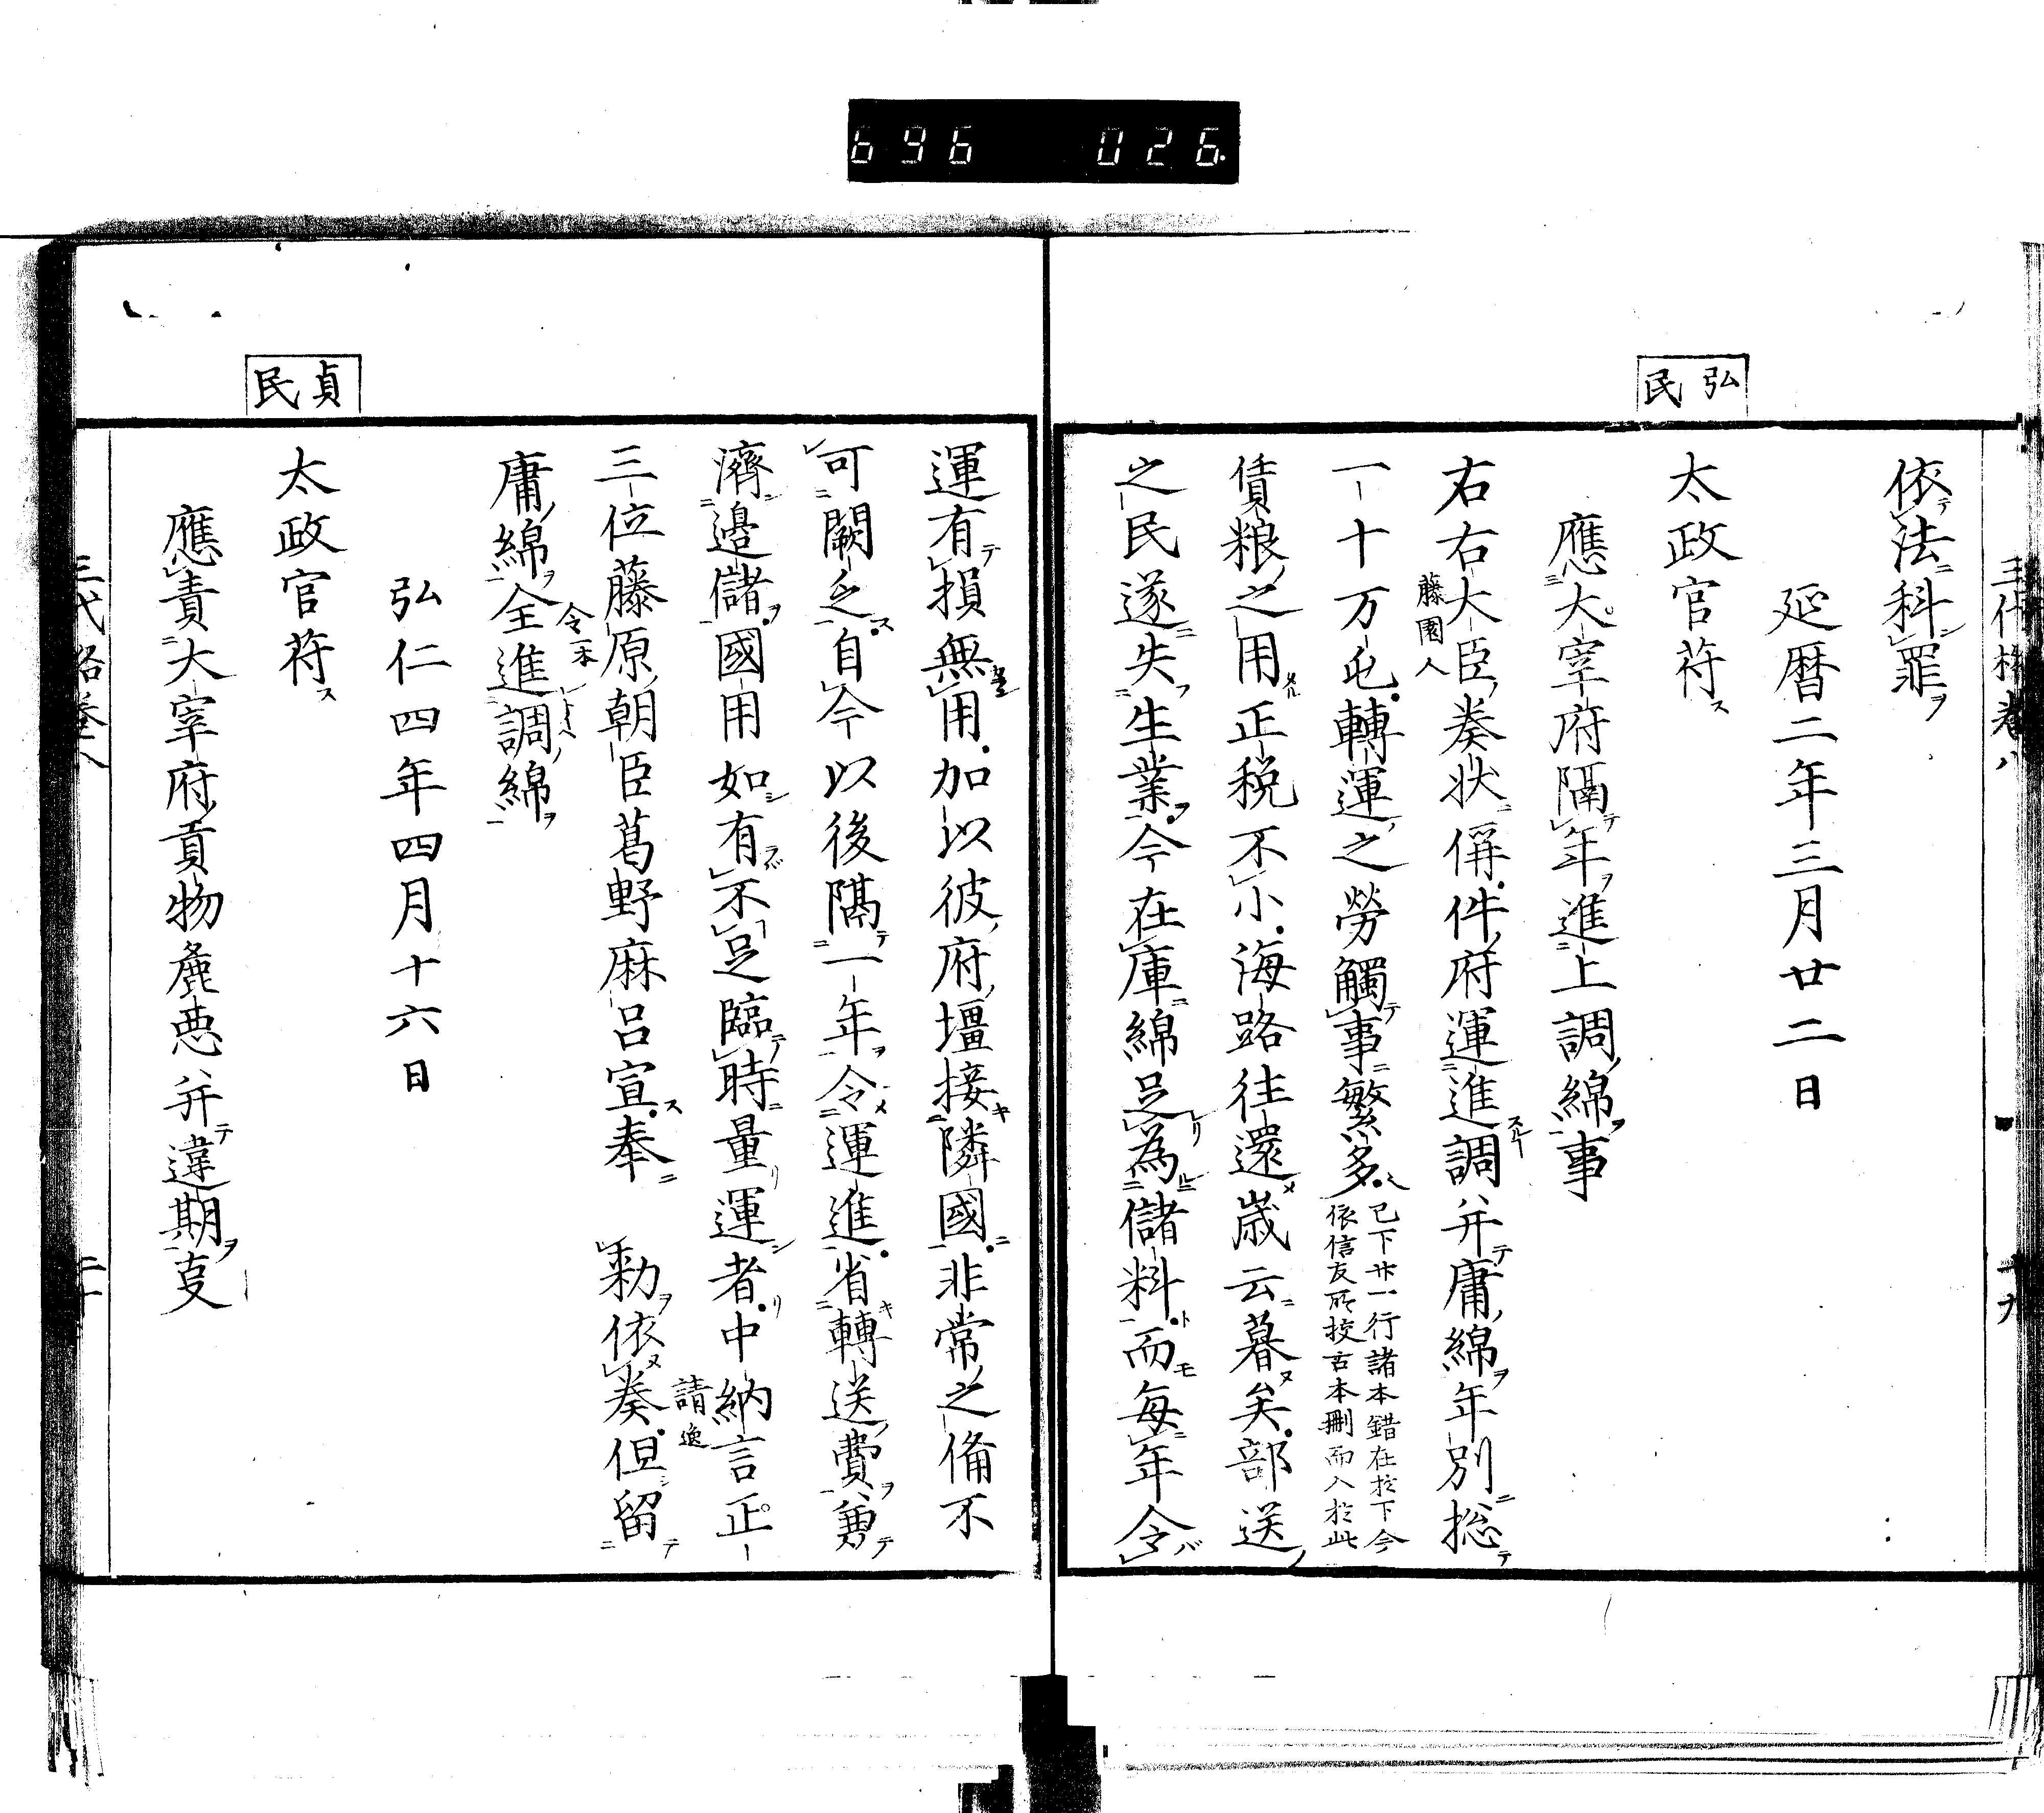 696 026
弘民
依法科罪
延暦二年三月廿二日
太政官符
應大宰府隔年進上調綿事
右右大臣奏状偁件府運進調并庸綿年別捴
藤園人
一十万屯轉運之勞觸事繁多
已下廿一行諸本錯在於下今
依信友所挍古本刪而入於此
賃粮之用正税不小海路往還歳云暮矣部送
之民遂失生業今在庫綿足為儲料而毎年令
貞民
運有損無用加以彼府壃接隣國非常之備不
可闕乏自今以後隔一年令運進省轉送費兼
濟邉儲國用如有不足臨時量運者中納言正
三位藤原朝臣葛野麻呂宣奉 勅依奏但留
請逸
庸綿全進調綿
令一本
弘仁四年四月十六日
太政官符
應責大宰府貢物麁悪并違期事